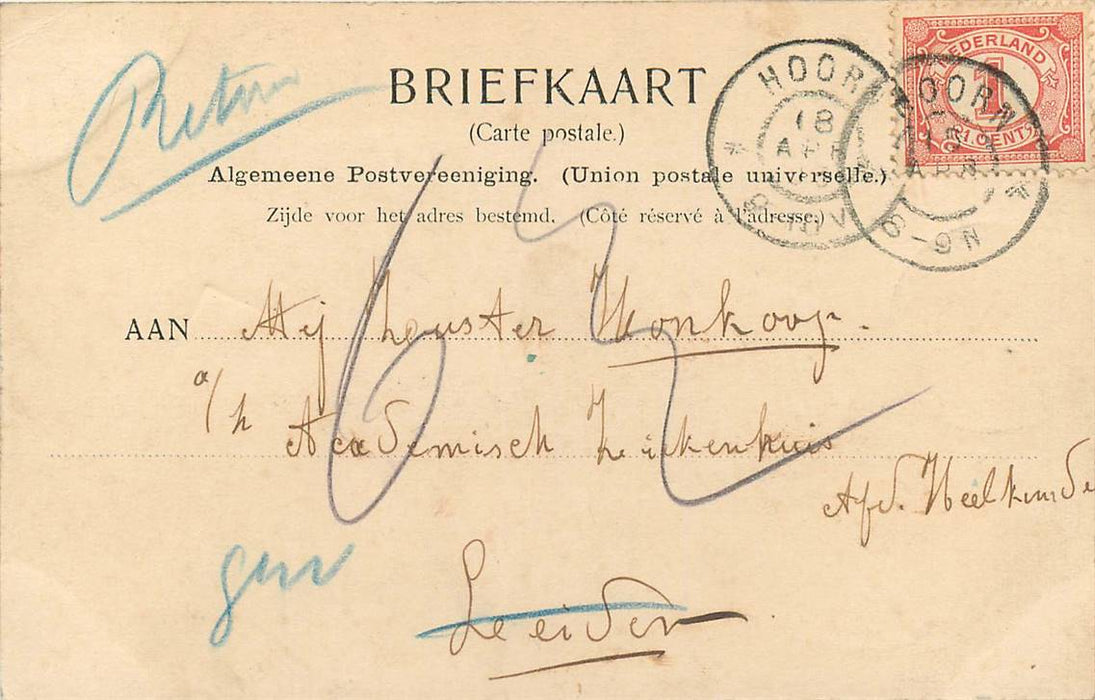 Retour
BRIEFKAART
(Carte postale.)
Algemeene Postvereeniging. (Union postale universelle.)
Zijde voor het adres bestemd. (Côté réservé à l'adresse.)
HOORN
18
APR
8-10V
HOORN
18
APR
6-9N
NEDERLAND
1
CENT
AAN Mej Zuster Monkoop.
a/h Academisch Ziekenhuis
Afd. Heelkunde
Leiden